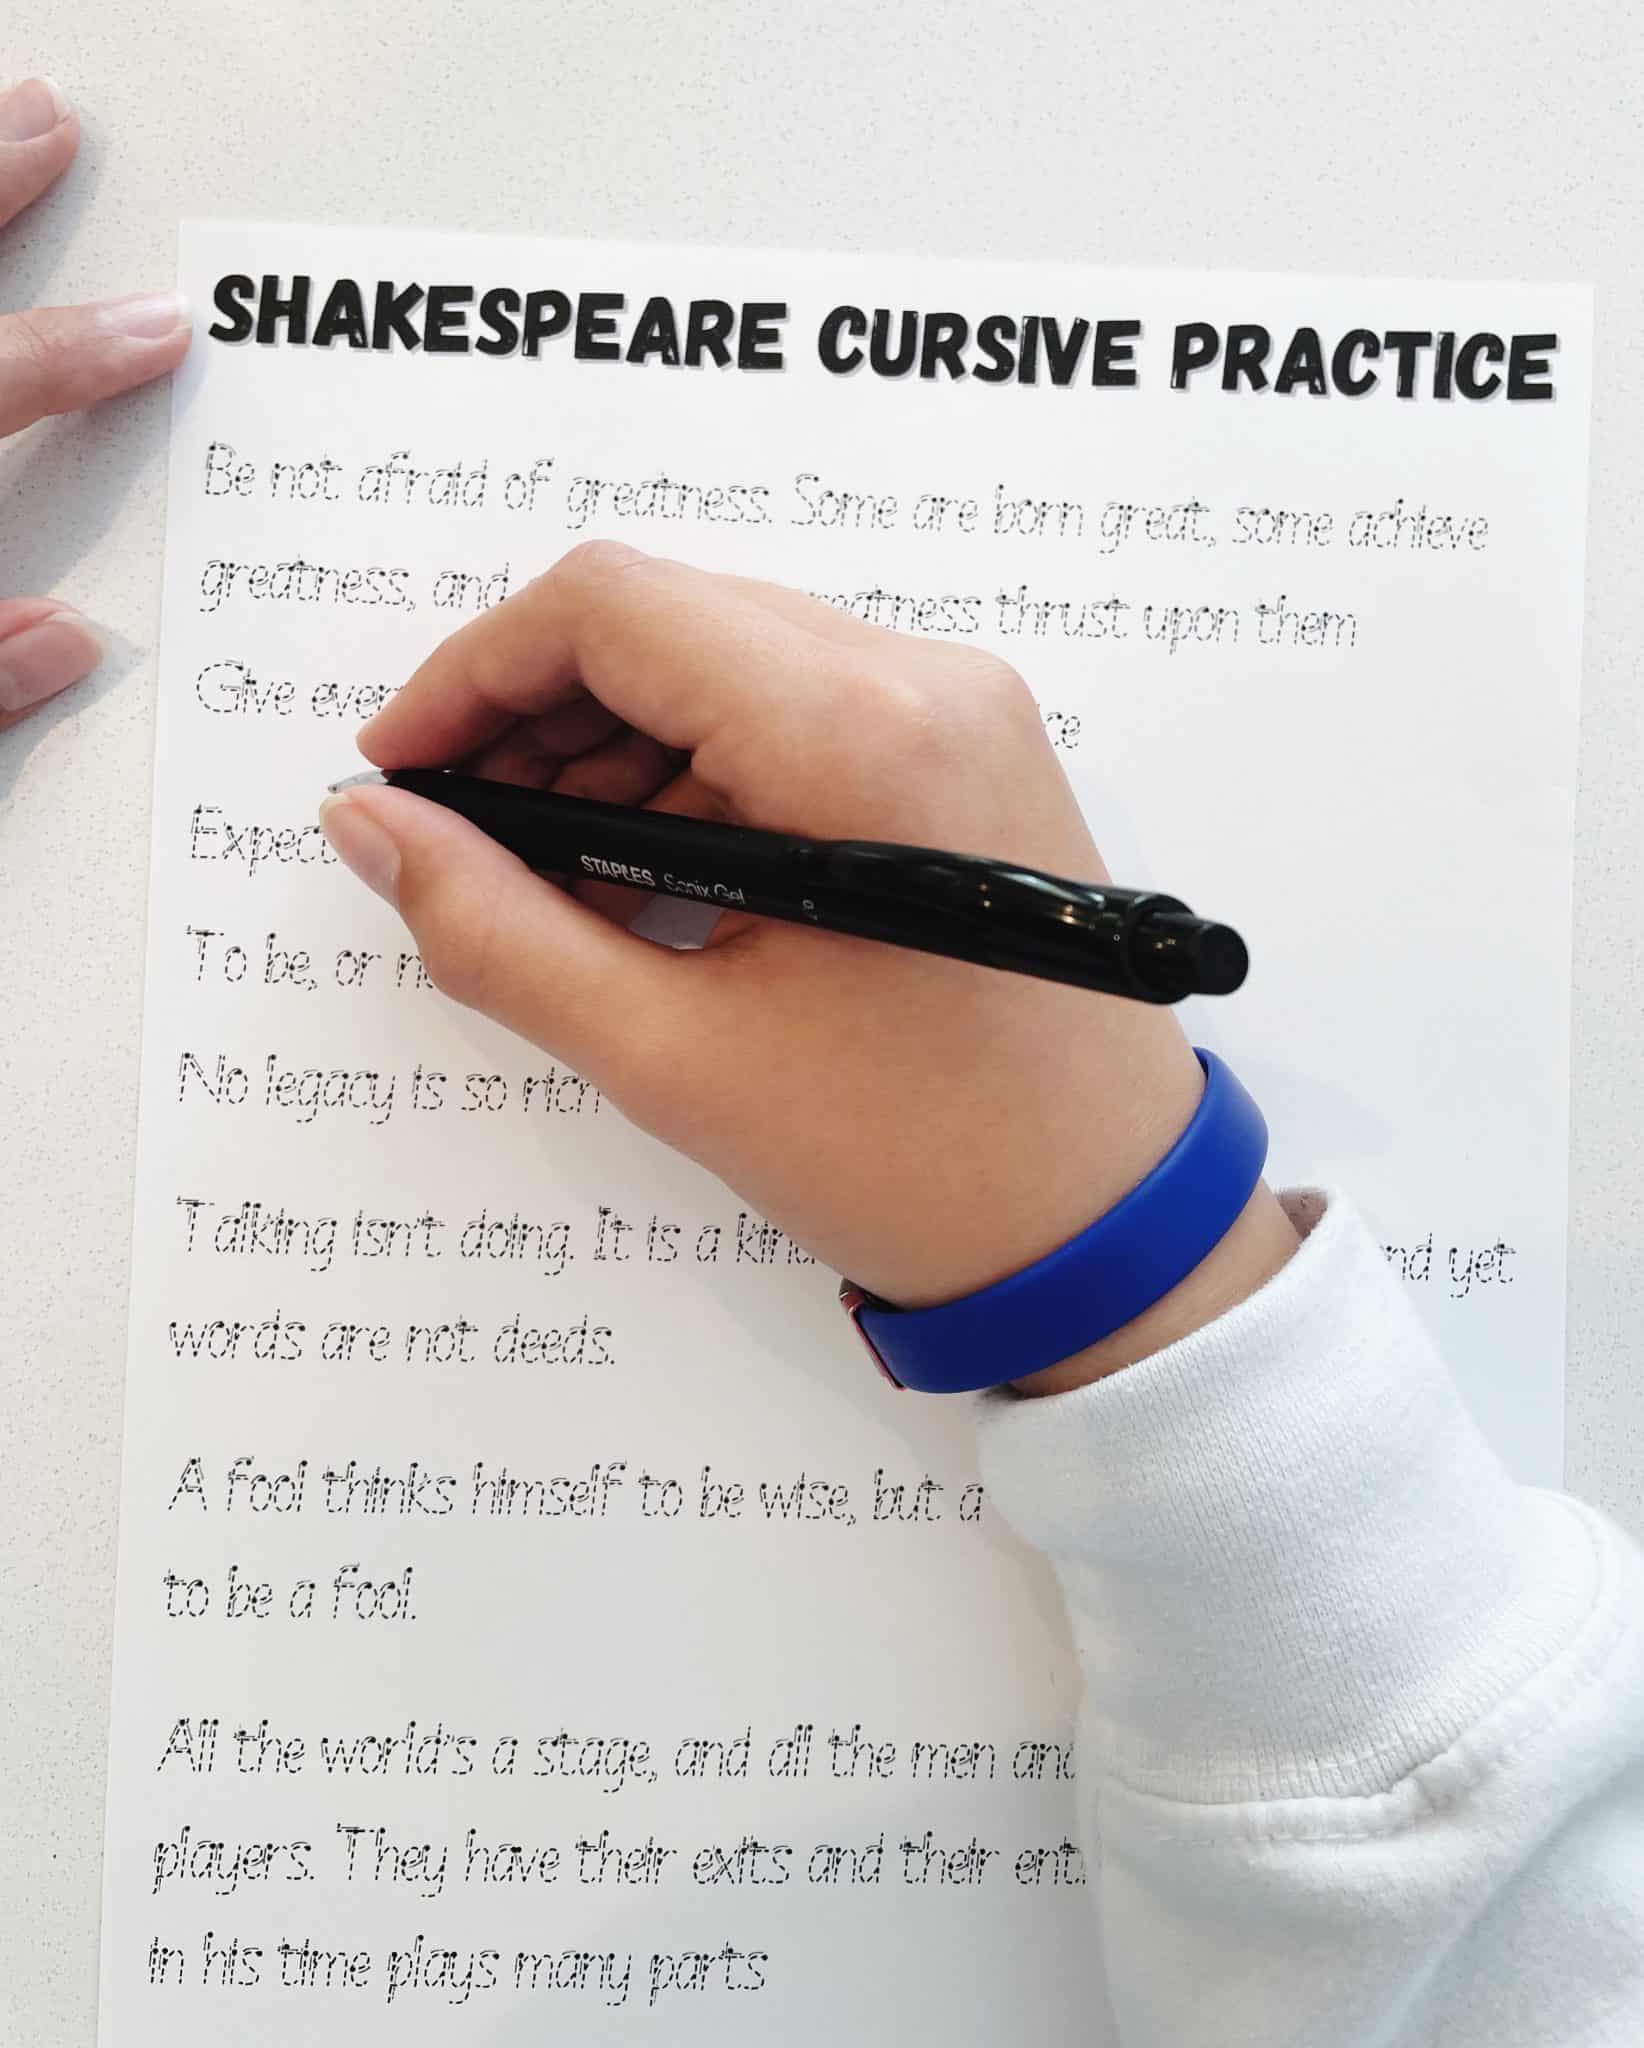 SHAKESPEARE CURSIVE PRACTICE
Be not afraid of greatness. Some are born great, some achieve
greatness, and greatness thrust upon them
Give
STAPLES Sonix Gel
To be, or
No legacy is so rich
Talking isn't doing. It is a kind and yet
words are not deeds.
A fool thinks himself to be wise, but a
to be a fool.
All the world's a stage, and all the men and
players. They have their exits and their
in his time plays many parts